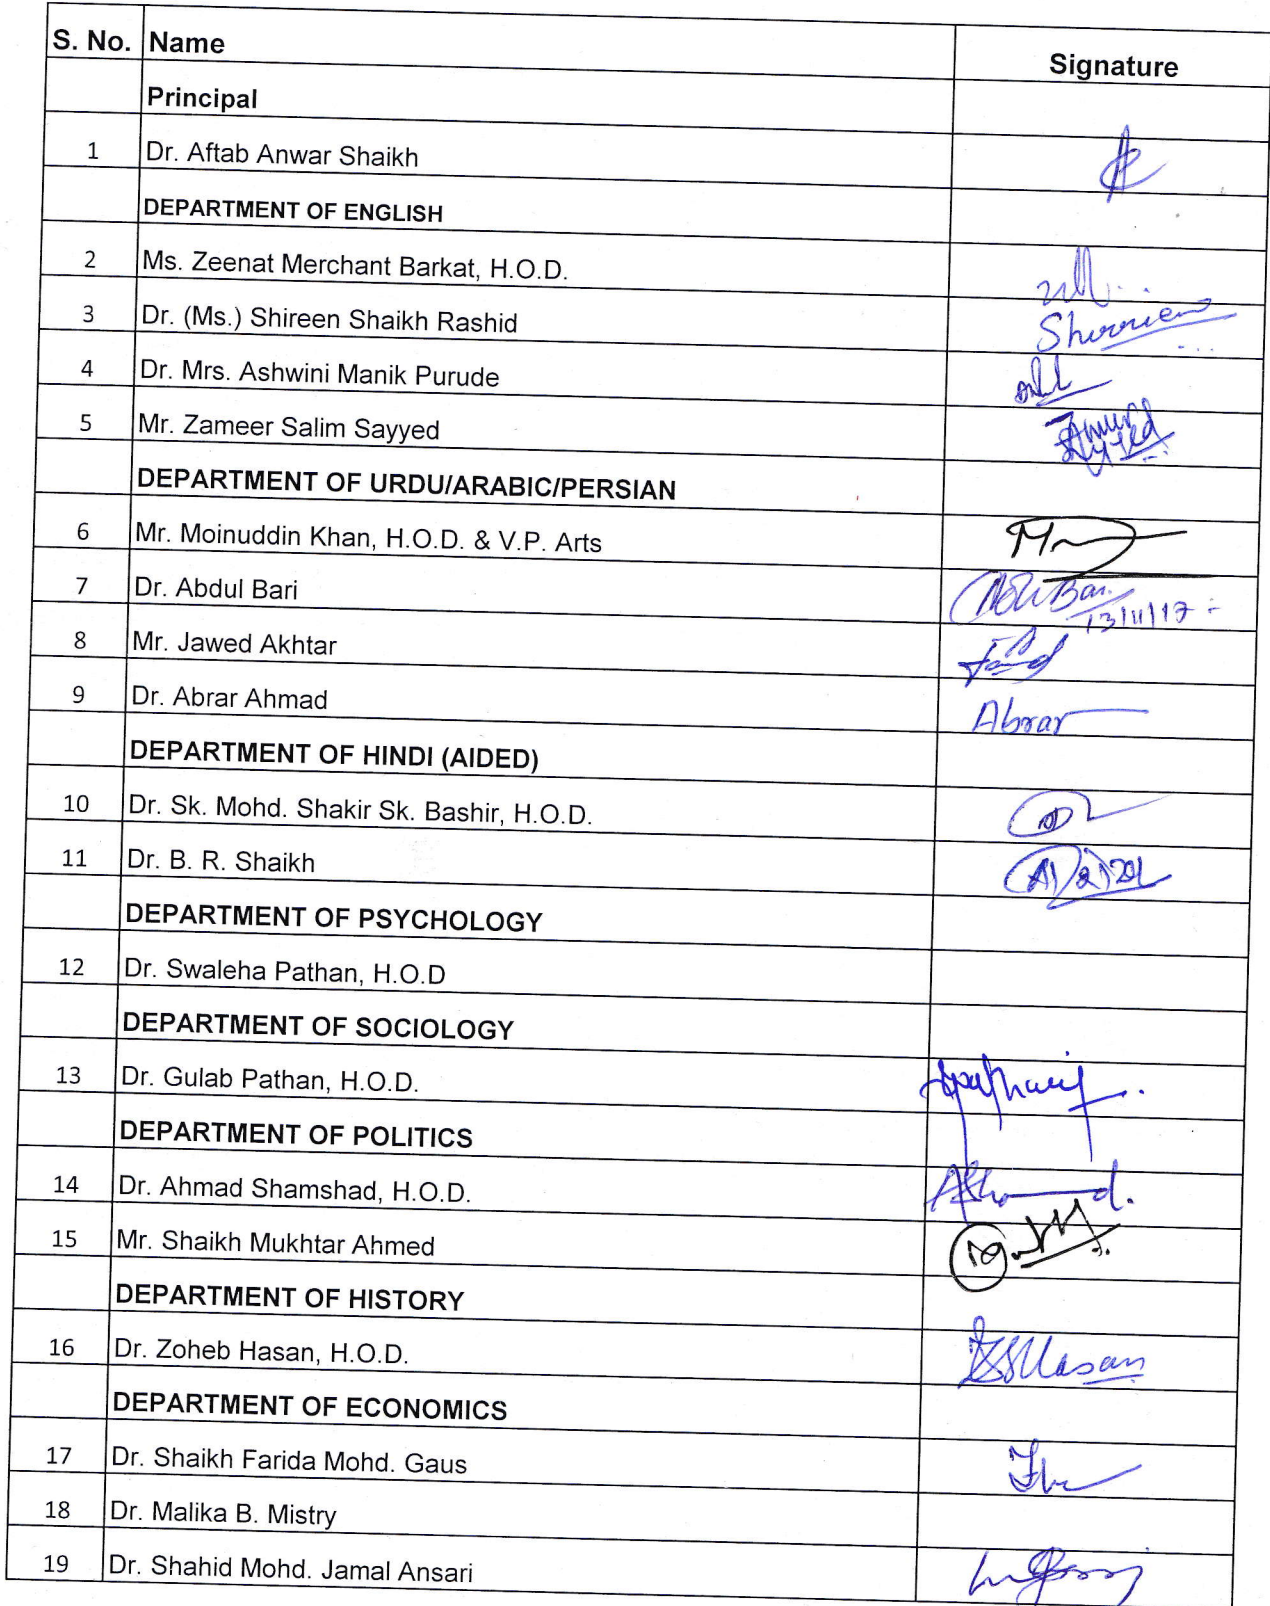 S. No. Name Signature
Principal
1 Dr. Aftab Anwar Shaikh
DEPARTMENT OF ENGLISH
2 Ms. Zeenat Merchant Barkat, H.O.D.
3 Dr. (Ms.) Shireen Shaikh Rashid Shireen
4 Dr. Mrs. Ashwini Manik Purude
5 Mr. Zameer Salim Sayyed
DEPARTMENT OF URDU/ARABIC/PERSIAN
6 Mr. Moinuddin Khan, H.O.D. & V.P. Arts
7 Dr. Abdul Bari Bari
13/11/17
8 Mr. Jawed Akhtar
9 Dr. Abrar Ahmad Abrar
DEPARTMENT OF HINDI (AIDED)
10 Dr. Sk. Mohd. Shakir Sk. Bashir, H.O.D.
11 Dr. B. R. Shaikh
DEPARTMENT OF PSYCHOLOGY
12 Dr. Swaleha Pathan, H.O.D
DEPARTMENT OF SOCIOLOGY
13 Dr. Gulab Pathan, H.O.D.
DEPARTMENT OF POLITICS
14 Dr. Ahmad Shamshad, H.O.D.
15 Mr. Shaikh Mukhtar Ahmed
DEPARTMENT OF HISTORY
16 Dr. Zoheb Hasan, H.O.D. Hasan
DEPARTMENT OF ECONOMICS
17 Dr. Shaikh Farida Mohd. Gaus
18 Dr. Malika B. Mistry
19 Dr. Shahid Mohd. Jamal Ansari